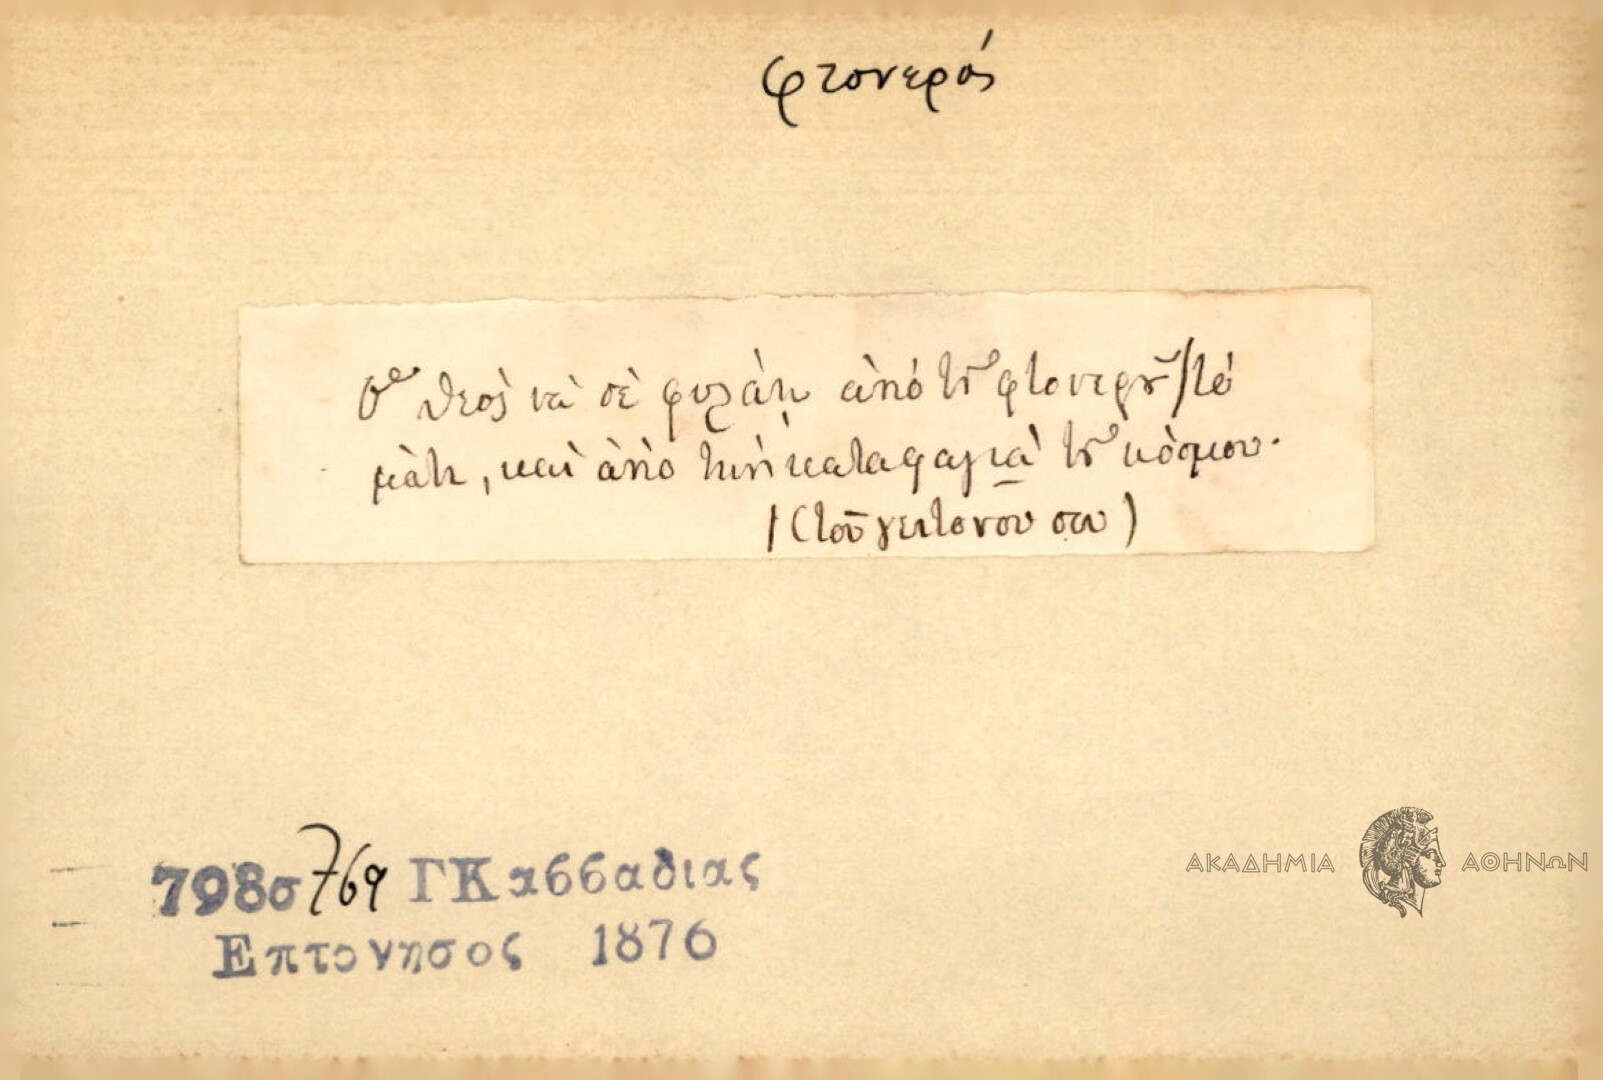 φτονερός
Ὁ Θεὸς νὰ σὲ φυλάτη ἀπό τȣ͂ φτονερȣ͂ / τό
μάτι, καὶ ἀπὸ τὴν καταφαγιὰ τȣ͂ κόσμου.
/ (τοῦ γειτόνου σου)
798σ 769 ΓΚαββαδιας
Επτονησος 1876
ΑΚΑΔΗΜΙΑ ΑΘΗΝΩΝ